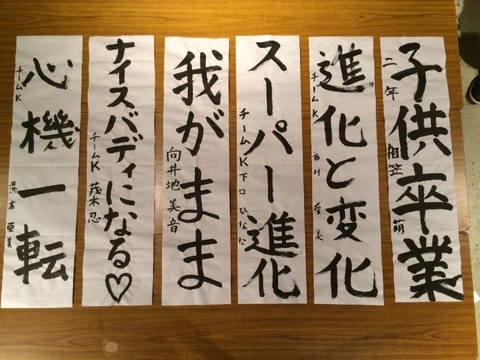 子供卒業
二年 相笠 萌
進化と変化
チームK 市川 愛美
スーパー進化
チームK 下口 ひなな
我がまま
向井地 美音
ナイスバディになる♡
チームK 茂木 忍
心機一転
チームK 湯本 亜美